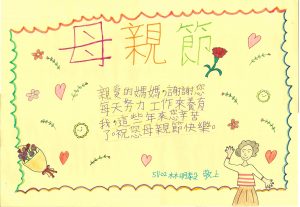 母親節
親愛的媽媽,謝謝您
每天努力工作來養育
我,這些年來您辛苦
了。祝您母親節快樂。
林 敬上